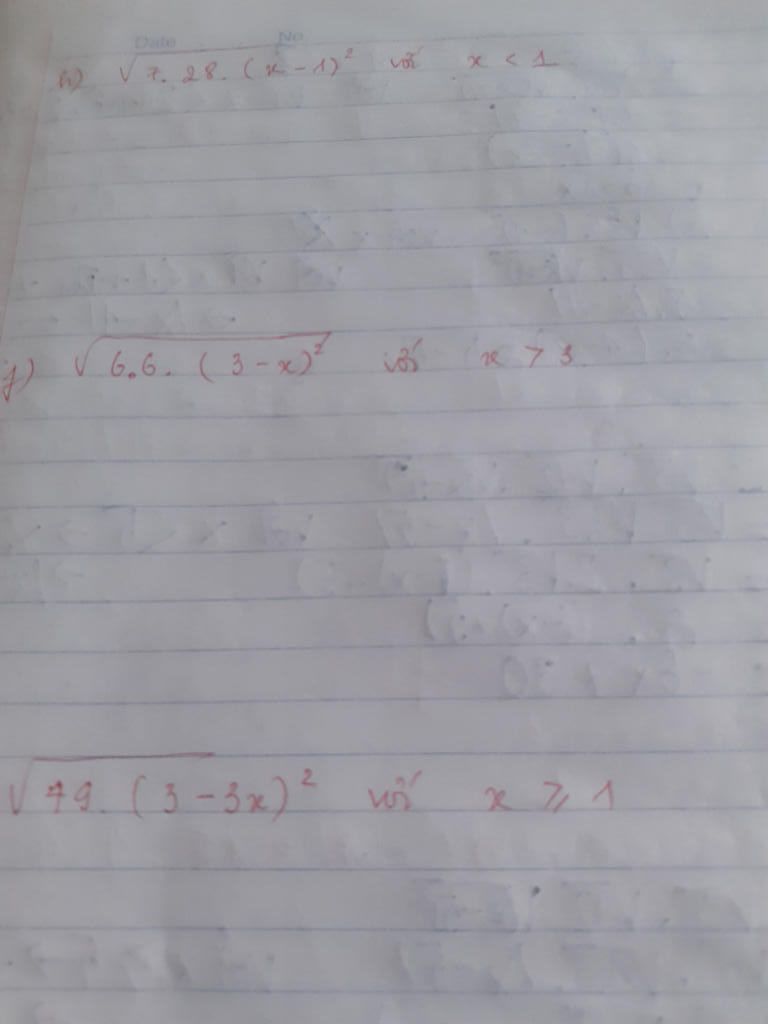 Date No
h) √7.28.(x-1)² với x < 1
√6.6.(3-x)² với x > 3
√49.(3-3x)² với x ⩾ 1